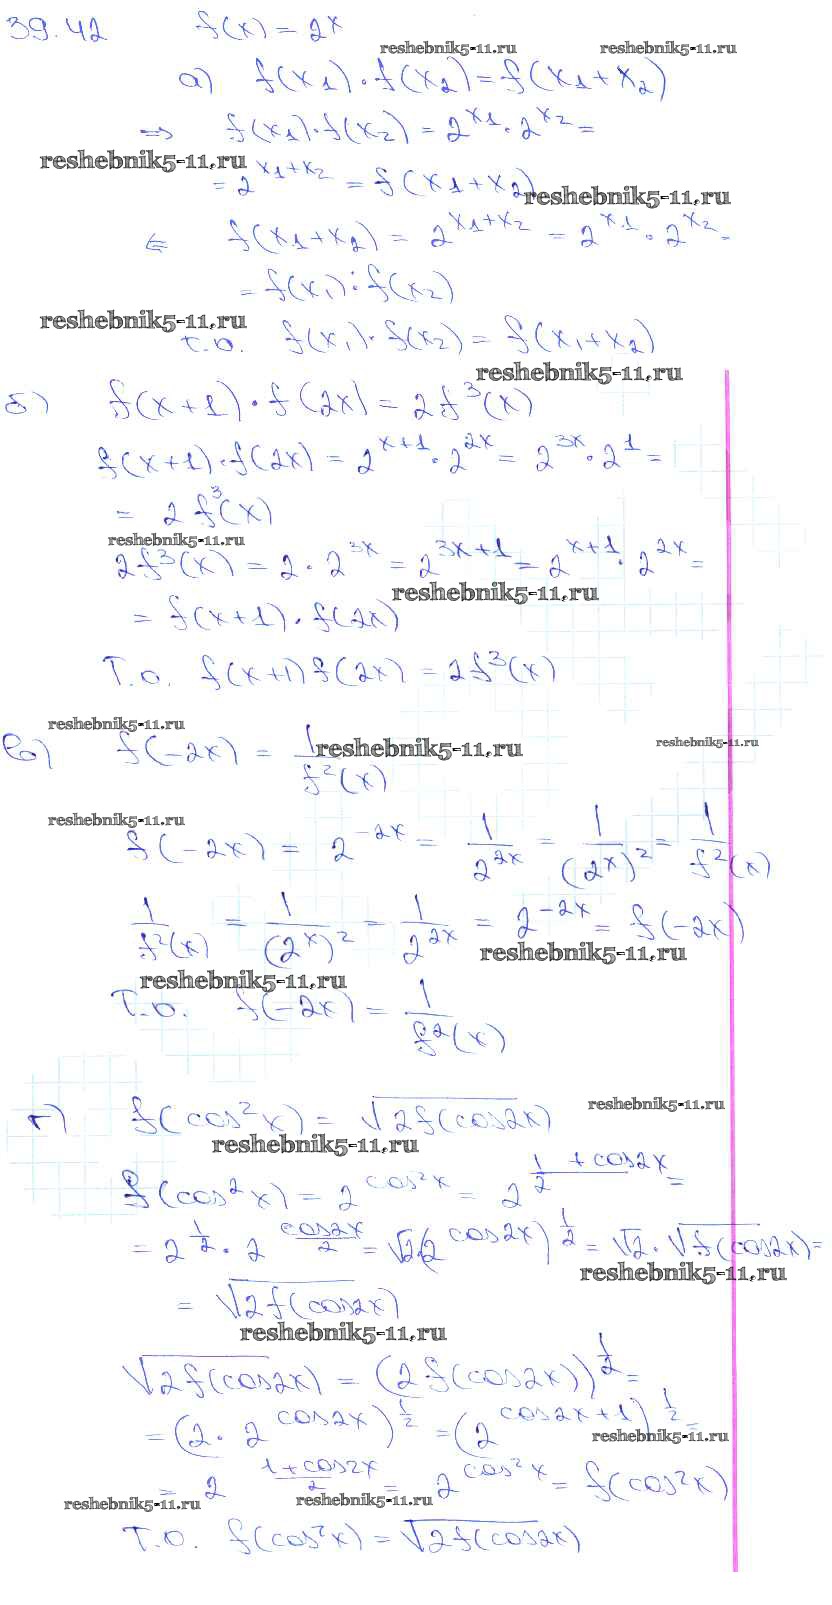 39.42 f(x) = 2^x
reshebnik5-11.ru reshebnik5-11.ru
а) f(x₁)·f(x₂) = f(x₁+x₂)
⇒ f(x₁)·f(x₂) = 2^{x₁}·2^{x₂} =
reshebnik5-11.ru
= 2^{x₁+x₂} = f(x₁+x₂)
reshebnik5-11.ru
⇐ f(x₁+x₂) = 2^{x₁+x₂} = 2^{x₁}·2^{x₂} =
= f(x₁)·f(x₂)
reshebnik5-11.ru
т.о. f(x₁)·f(x₂) = f(x₁+x₂)
reshebnik5-11.ru
б) f(x+1)·f(2x) = 2f³(x)
f(x+1)·f(2x) = 2^{x+1}·2^{2x} = 2^{3x}·2^1 =
= 2f³(x)
reshebnik5-11.ru
2f³(x) = 2·2^{3x} = 2^{3x+1} = 2^{x+1}·2^{2x} =
reshebnik5-11.ru
= f(x+1)·f(2x)
Т.о. f(x+1)f(2x) = 2f³(x)
reshebnik5-11.ru
в) f(-2x) = 1/f²(x)
reshebnik5-11.ru reshebnik5-11.ru
reshebnik5-11.ru
f(-2x) = 2^{-2x} = 1/2^{2x} = 1/(2^x)² = 1/f²(x)
1/f²(x) = 1/(2^x)² = 1/2^{2x} = 2^{-2x} = f(-2x)
reshebnik5-11.ru
reshebnik5-11.ru
Т.о. f(-2x) = 1/f²(x)
reshebnik5-11.ru
г) f(cos²x) = √(2f(cos2x))
reshebnik5-11.ru
f(cos²x) = 2^{cos²x} = 2^{(1+cos2x)/2} =
= 2^{1/2}·2^{cos2x/2} = √2·(2^{cos2x})^{1/2} = √2·√(f(cos2x)) =
reshebnik5-11.ru
= √(2f(cos2x))
reshebnik5-11.ru
√(2f(cos2x)) = (2f(cos2x))^{1/2} =
= (2·2^{cos2x})^{1/2} = (2^{cos2x+1})^{1/2} =
reshebnik5-11.ru
= 2^{(1+cos2x)/2} = 2^{cos²x} = f(cos²x)
reshebnik5-11.ru reshebnik5-11.ru
Т.о. f(cos²x) = √(2f(cos2x))